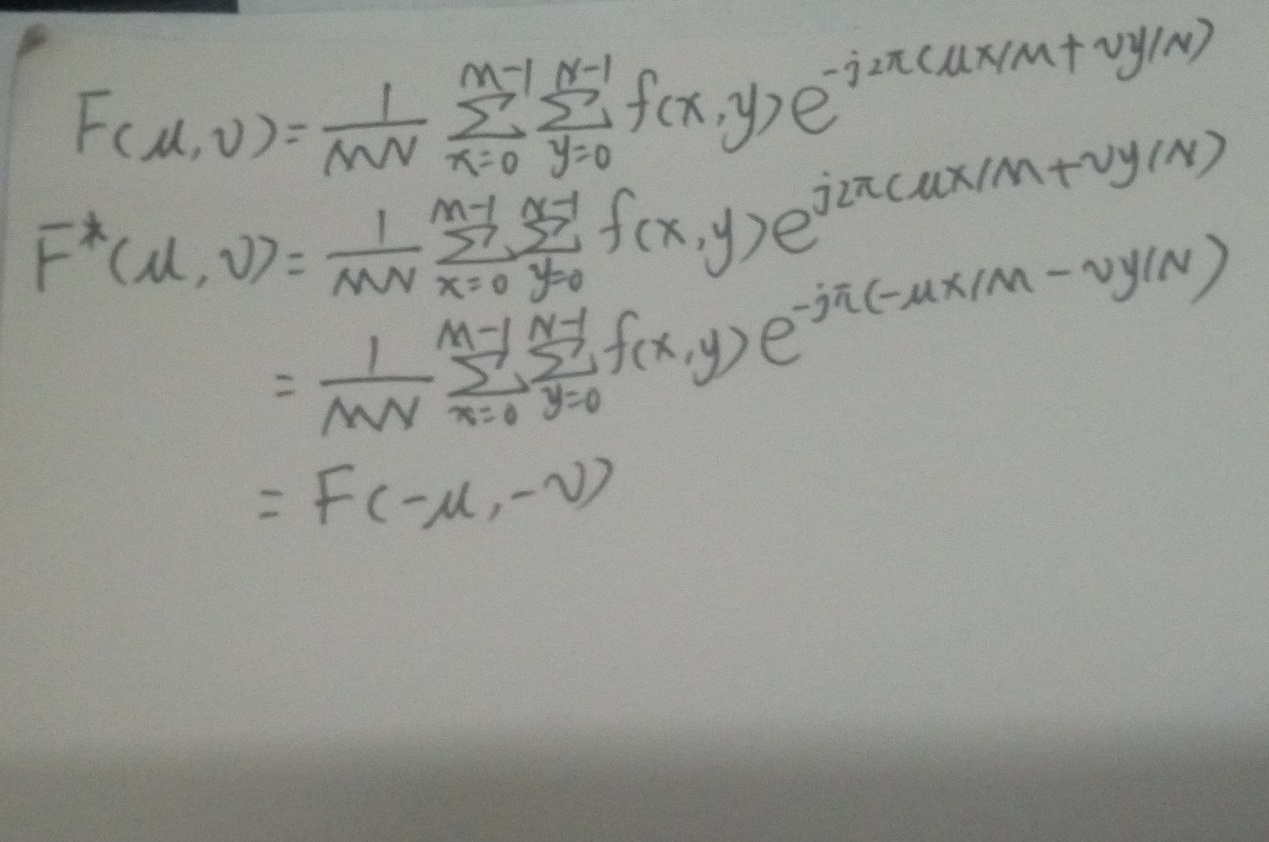 F(μ,ν)=\frac{1}{MN} \sum_{x=0}^{M-1} \sum_{y=0}^{N-1} f(x,y)e^{-j2π(μx/M+νy/N)}
F*(μ,ν)=\frac{1}{MN} \sum_{x=0}^{M-1} \sum_{y=0}^{N-1} f(x,y)e^{j2π(μx/M+νy/N)}
=\frac{1}{MN} \sum_{x=0}^{M-1} \sum_{y=0}^{N-1} f(x,y)e^{-jπ(-μx/M-νy/N)}
=F(-μ,-ν)